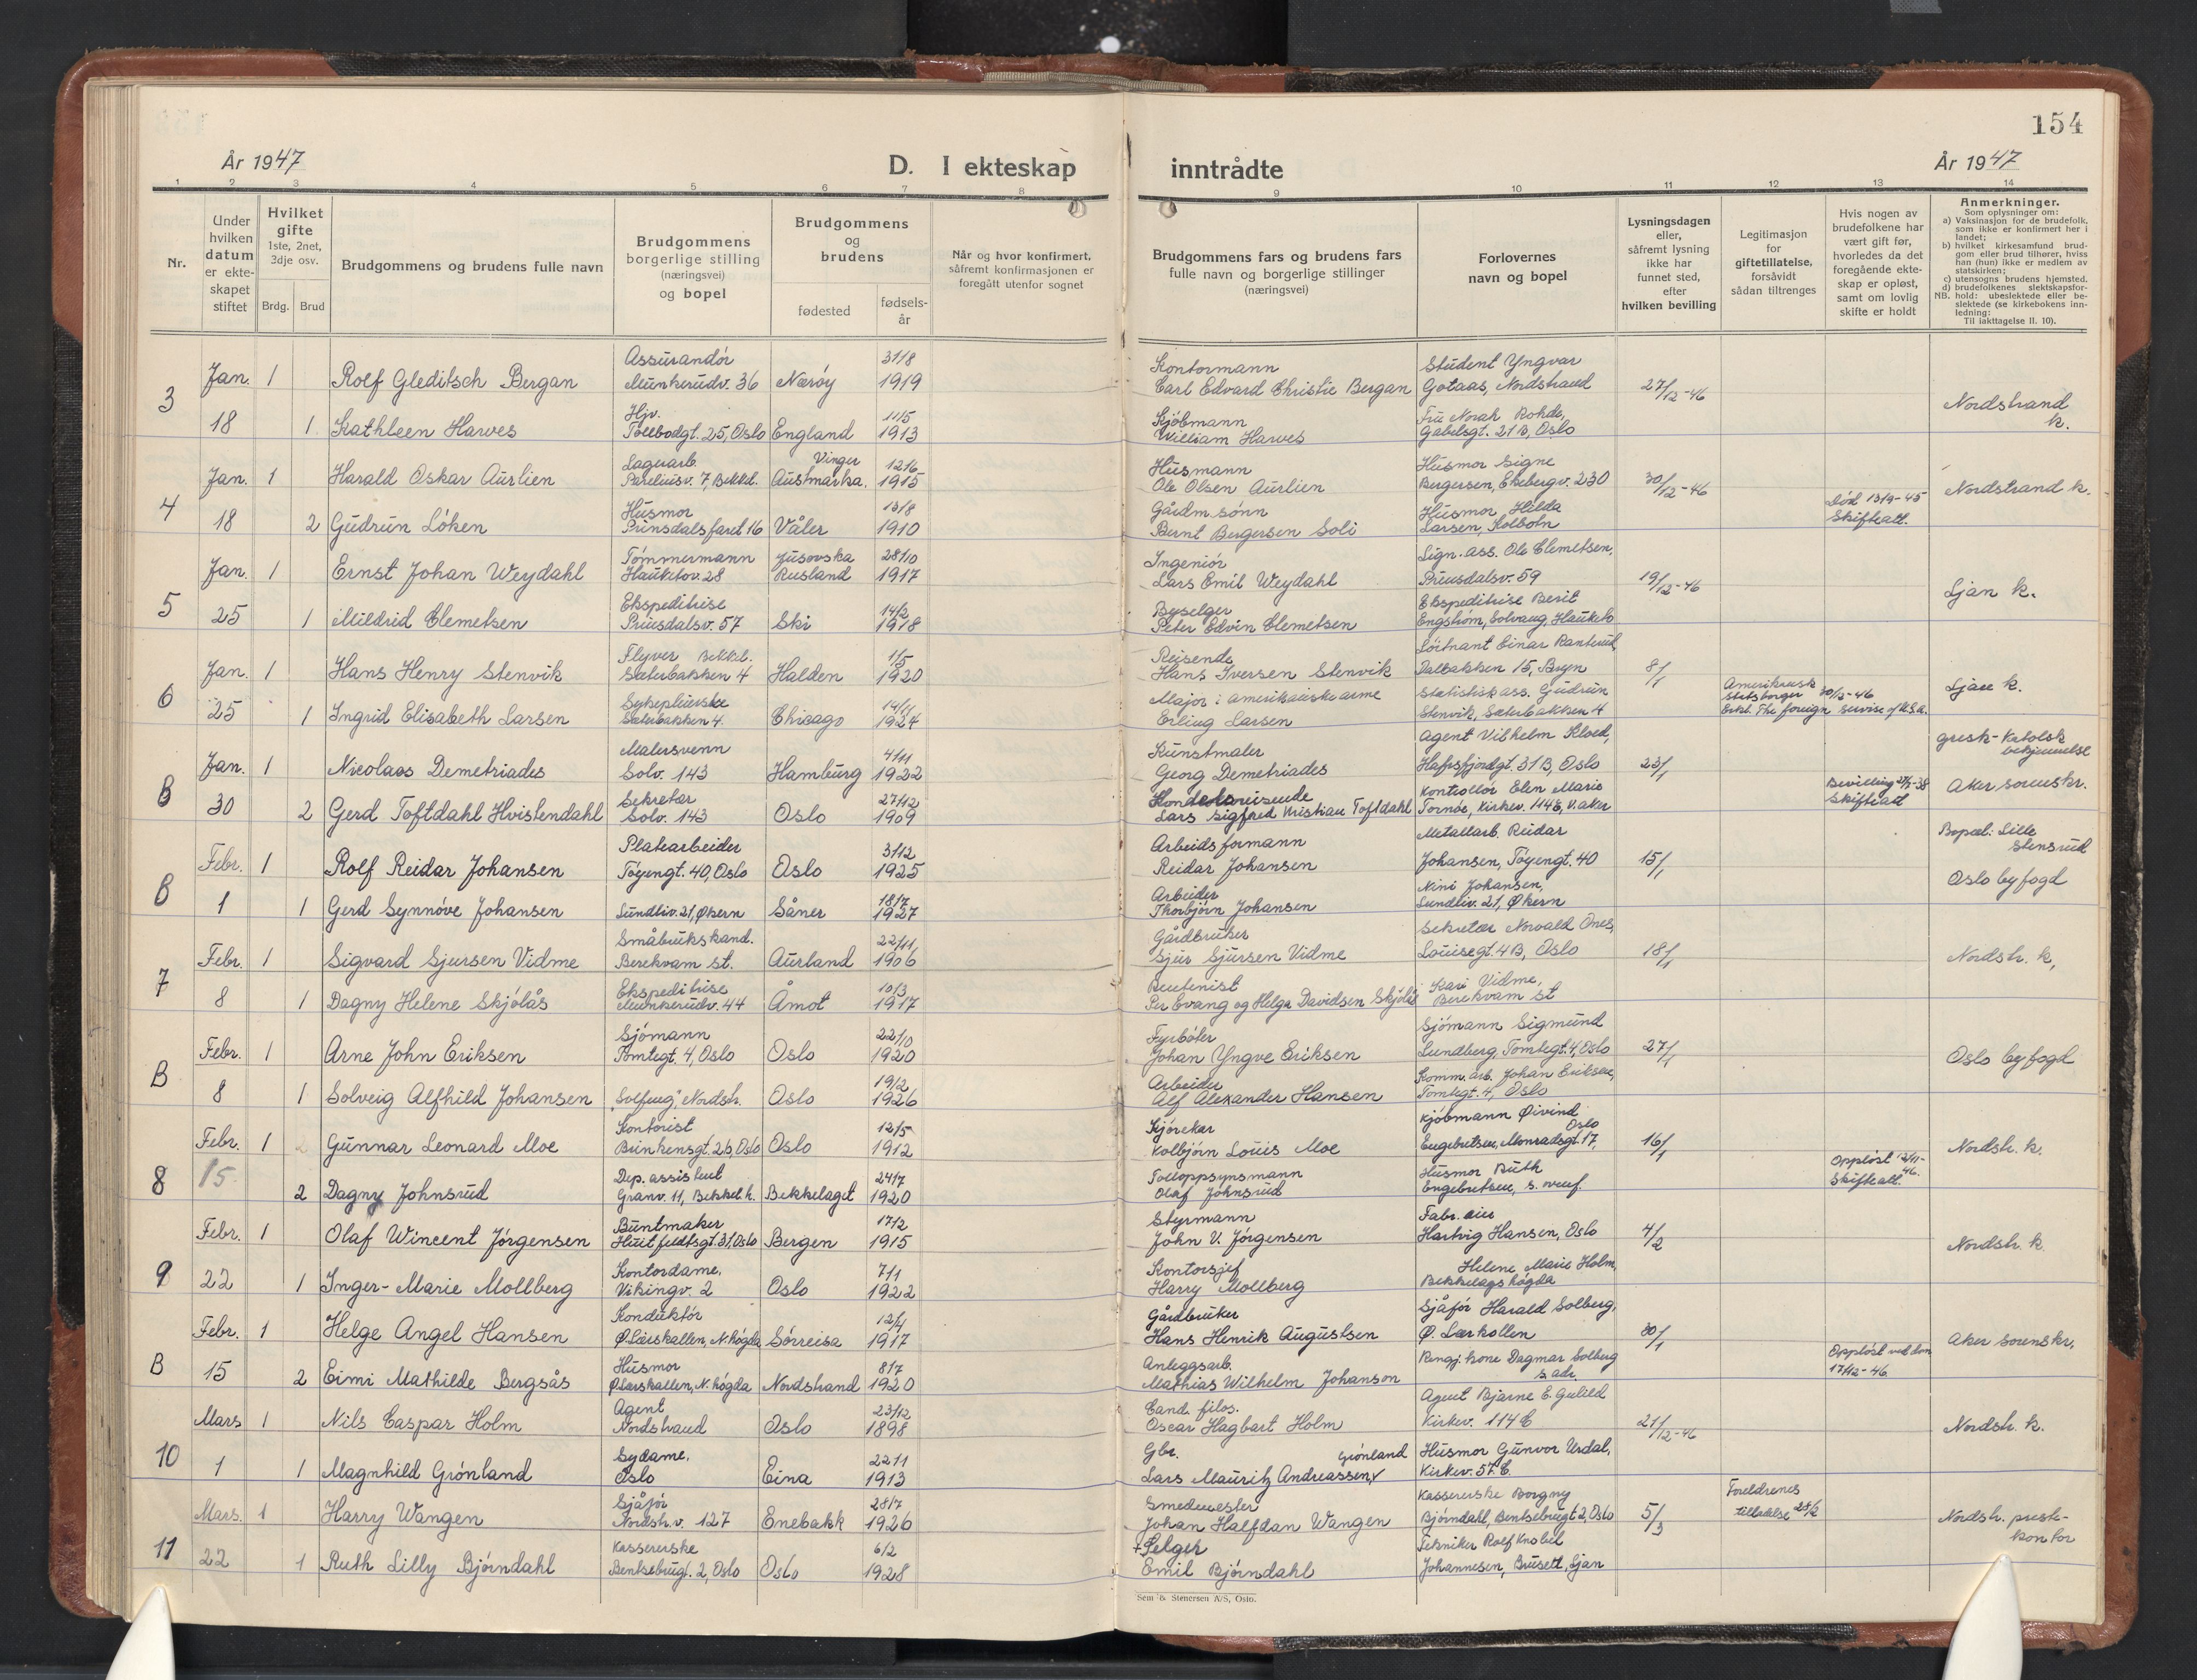 154
År 1947
D. I ekteskap inntrådte
År 1947
1 2 3 4 5 6 7 8 9 10 11 12 13 14
Nr.
Under hvilken datum er ekte-skapet stiftet
Hvilket gifte 1ste, 2net, 3dje osv.
Brdg. Brud
Brudgommens og brudens fulle navn
Brudgommens borgerlige stilling (næringsvei) og bopel
Brudgommens og brudens
fødested
fødsels-år
Når og hvor konfirmert, såfremt konfirmasjonen er foregått utenfor sognet
Brudgommens fars og brudens fars fulle navn og borgerlige stillinger (næringsvei)
Forlovernes navn og bopel
Lysningsdagen eller, såfremt lysning ikke har funnet sted, efter hvilken bevilling
Legitimasjon for giftetillatelse, forsåvidt sådan tiltrenges
Hvis nogen av brudefolkene har vært gift før, hvorledes da det foregående ekte-skap er opløst, samt om lovlig skifte er holdt
Anmerkninger.
Som oplysninger om:
a) Vaksinasjon for de brudefolk, som ikke er konfirmert her i landet;
b) hvilket kirkesamfund brud-gom eller brud tilhører, hviss han (hun) ikke er medlem av statskirken;
c) utensogns brudens hjemsted.
d) brudefolkenes slektskapsfor-hold: ubeslektede eller be-slektede (se kirkebokens inn-ledning:
NB.
Til iakttagelse II. 10).
3 Jan. 1 Rolf Gleditsch Bergan Assurandör Munkerudv. 36 Nærøy 31/8 1919 Kontormann Carl Edvard Christie Bergan Student Yngvar Gotaas, Nordstrand 27/12-46 Nordstrand k.
18 1 Kathleen Harves Hjv. Tollbodgt. 25, Oslo England 11/5 1913 Kjöbmann William Harves Fru Norah Rohde, Gabelsgt. 21B, Oslo
4 Jan. 1 Harald Oskar Aurlien Lagerarb. Pareliusv. 7, Bekkel. Vinger Austmarka. 12/6 1915 Husmann Ole Olsen Aurlien Husmor Signe Bergersen, Ekebergv. 230 30/12-46 Nordstrand k.
18 2 Gudrun Löken Husmor Prinsdalsfaret 16 Våler 13/8 1910 Gårdm. sönn Bernt Bergersen Soli Husmor Hilda Larsen, Kolbotn Död 13/9-45 Skifteatt.
5 Jan. 1 Ernst Johan Weydahl Tömmermann Hauketov. 28 Jusovska Rusland 28/10 1917 Ingeniör Lars Emil Weydahl Lign. ass. Ole Clemetsen, Prinsdalsv. 59 19/12-46 Ljan k.
25 1 Mildrid Clemetsen Ekspeditrise Prinsdalsv. 57 Ski 14/2 1918 Byselger Peter Edvin Clemetsen Ekspeditrise Berit Engström, Solvang, Hauketo
6 Jan. 1 Hans Henry Stenvik Flyver Bekkel. Sæterbakken 4 Halden 1/5 1920 Reisende Hans Iversen Stenvik Löitnant Einar Ranterud, Dalbakken 15, Bryn 8/1 Amerikansk statsborger 30/12-46 Erkl. The foreign servise of U.S.A. Ljan k.
25 1 Ingrid Elisabeth Larsen Sykepleierske Sæterbakken 4. Chicago 14/11 1924 Major i amerikanske arme Erling Larsen Statistisk ass. Gudrun Stenvik, Sæterbakken 4
B Jan. 1 Nicolaos Demetriades Malersvenn Solv. 143 Hamburg 4/11 1922 Kunstmaler Georg Demetriades Agent Vilhelm Kloed, Hafrsfjordgt. 31B, Oslo 23/1 gresk-katolsk bekjennelse
30 2 Gerd Toftdahl Hvistendahl Sekretær Solv. 143 Oslo 27/12 1909 Handelsreisende Lars Sigfred Kristian Toftdahl Kontrollör Elen Marie Tornöe, Kirkev. 114E, V. aker Bevilling 27/5-38 Skifteatt Aker sorenskr.
B Febr. 1 Rolf Reidar Johansen Platearbeider Töyengt. 40, Oslo Oslo 3/12 1925 Arbeidsformann Reidar Johansen Metallarb. Reidar Johansen, Töyengt. 40 15/1 Bopæl: Lille Stensrud
1 1 Gerd Synnöve Johansen Lundliv. 21, Økern Såner 18/7 1927 Arbeider Thorbjörn Johansen Nini Johansen, Lundliv. 21, Økern Oslo byfogd
7 Febr. 1 Sigvard Sjursen Vidme Småbrukskand. Berekvam st. Aurland 22/11 1906 Gårdbruker Sjur Sjursen Vidme Sekretær Norvald Ones, Louisegt. 4B, Oslo 18/1 Nordstr. k,
8 1 Dagny Helene Skjölås Ekspeditrise Munkerudv. 44 Åmot 10/3 1917 Per Evang og Helga Davidsen Skjölås Kari Vidme, Berekvam st
B Febr. 1 Arne John Eriksen Sjömann Tomtegt. 4, Oslo Oslo 22/10 1920 Fyrböter Johan Yngve Eriksen Sjömann Sigmund Lundberg, Tomtegt. 4, Oslo 27/1 Oslo byfogd
8 1 Solveig Alfhild Johansen "Solheug", Nordstr. Oslo 19/2 1926 Arbeider Alf Alexander Hansen Komm. arb. Johan Eriksen, Tomtegt. 4, Oslo
8 Febr. 1 Gunnar Leonard Moe Kontorist Brinkensgt. 26, Oslo Oslo 12/5 1912 Kjörekar Kolbjörn Louis Moe Kjöbmann Øivind Engebretsen, Monradsgt. 17, Oslo 16/1 Nordstr. k.
15. 2 Dagny Johnsrud Dep. assistent Granv. 11, Bekkel. h. Bekkelaget 24/7 1920 Tolloppsynsmann Olaf Johnsrud Husmor Ruth Engebretsen, s. Oppløst 12/11-46. Skifteatt.
9 Febr. 1 Olaf Wincent Jörgensen Buntmaker Huitfeldtsgt. 31, Oslo Bergen 17/2 1915 Styrmann John V. Jörgensen Fabr. eier Hartvig Hansen, Oslo 4/2 Nordstr. k
22 1 Inger-Marie Mollberg Kontordame, Vikingv. 2 Oslo 7/11 1922 Kontorsjef Harry Mollberg Helene Marie Holm, Bekkelagshögda
B Febr. 1 Helge Angel Hansen Konduktör Ø. Lærskallen, N. högda Sörreisa 12/4 1917 Gårdbruker Hans Henrik Augustsen Sjåför Harald Solberg, Ø. Lærkollen 30/1 Aker sorenskr,
15 2 Eimi Mathilde Bergsås Husmor Ø Lærskallen, N. högda Nordstrand 8/7 1920 Anleggsarb. Mathias Wilhelm Johanson Rengj. kone Dagmar Solberg s. adr. Oppløst ved dom 17/12-46
10 Mars 1 Nils Caspar Holm Agent Nordstrand Oslo 23/12 1898 Cand. filos. Oscar Hagbart Holm Agent Bjarne E. Gulild Kirkev. 114C 21/12-46 Nordstr. k.
1 1 Magnhild Grönland Sydame, Oslo Eina 22/11 1913 Gbr. Lars Mauritz Andreassen, Grönland Husmor Gunvor Urdal, Kirkev. 57 C.
11 Mars. 1 Harry Wangen Sjåför Nordstr. v. 127 Enebakk 28/7 1926 Smedmester Johan Halfdan Wangen Kassererske Borgny Björndahl, Bentsebrugt 2, Oslo 5/3 Foreldrenes tilladelse 28/2 Nordstr. preste-kontor
22 1 Ruth Lilly Björndahl Kassererske Bentsebrugt. 2, Oslo Oslo 6/2 1928 + Selger Emil Björndahl Tekniker Rolf Knobel Johannesen, Brusett, Ljan
Sem & Stenersen A/S, Oslo.